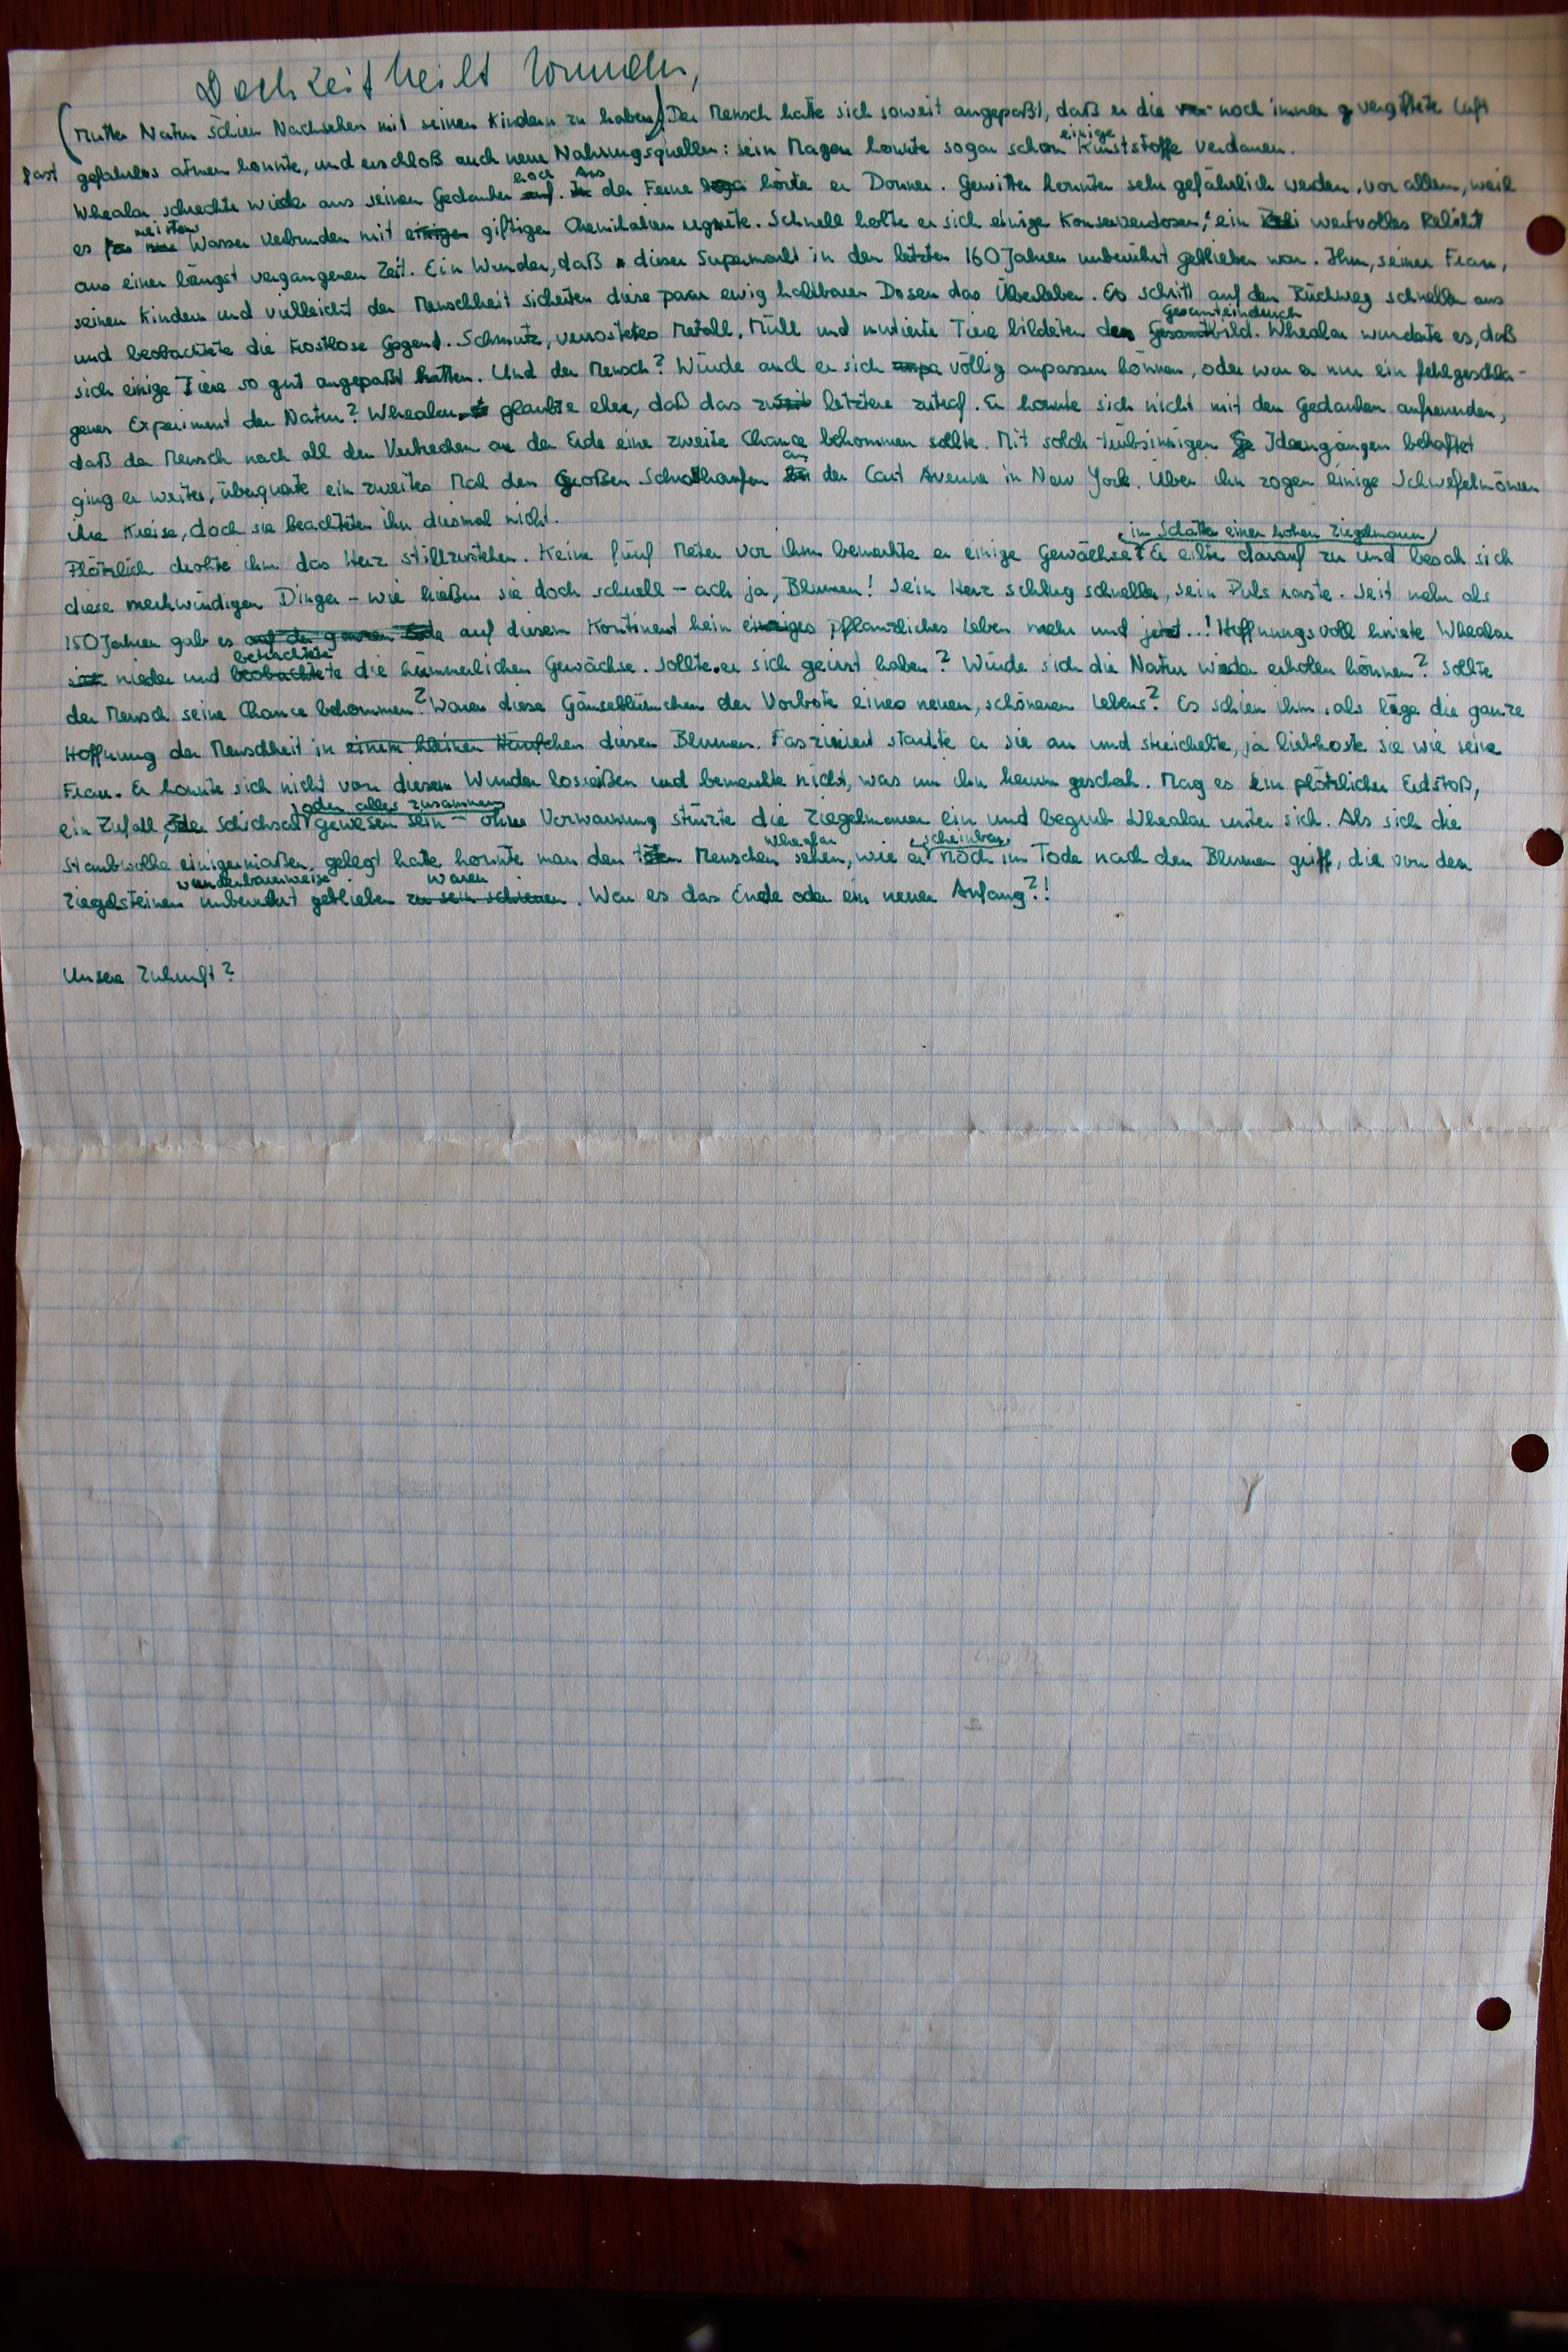 Doch Zeit heilt Wunden,
(Mutter Natur schien Nachsehen mit seinen Kindern zu haben) Der Mensch hatte sich soweit angepaßt, daß er die noch immer vergiftete Luft
fast gefahrlos atmen konnte, und erschloß auch neue Nahrungsquellen: sein Magen konnte sogar schon einige Kunststoffe verdauen.
Whealan schreckte wieder aus seinen Gedanken hoch. Aus der Ferne hörte er Donner. Gewitter konnten sehr gefährlich werden, vor allem, weil
es meistens Wasser verbunden mit einigen giftigen Chemikalien regnete. Schnell holte er sich einige Konservendosen, ein wertvolles Relikt
aus einer längst vergangenen Zeit. Ein Wunder, daß dieser Supermarkt in den letzten 160 Jahren unberührt geblieben war. Ihm, seiner Frau,
seinen Kindern und vielleicht der Menschheit sicherten diese paar ewig haltbaren Dosen das Überleben. Er schritt auf dem Rückweg schneller aus
und beobachtete die trostlose Gegend. Schmutz, verrostetes Metall, Müll und mutierte Tiere bildeten den Gesamteindruck Gesamtbild. Whealan wunderte es, daß
sich einige Tiere so gut angepaßt hatten. Und der Mensch? Würde auch er sich anpa völlig anpassen können, oder war er nur ein fehlgeschla-
genes Experiment der Natur? Whealan glaubte eher, daß das letztere zutraf. Er konnte sich nicht mit dem Gedanken anfreunden,
daß der Mensch nach all den Verbrechen an der Erde eine zweite Chance bekommen sollte. Mit solch trübsinnigen Ideengängen behaftet
ging er weiter, überquerte ein zweites Mal den großen Schrotthaufen an der Cart Avenue in New York. Über ihm zogen einige Schwefelmöwen
ihre Kreise, doch sie beachteten ihn diesmal nicht.
Plötzlich drohte ihm das Herz stillzustehen. Keine fünf Meter vor ihm bemerkte er einige Gewächse im Schatten einer hohen Ziegelmauer. Er eilte darauf zu und besah sich
diese merkwürdigen Dinger - wie hießen sie doch schnell - ach ja, Blumen! Sein Herz schlug schneller, sein Puls raste. Seit mehr als
150 Jahren gab es auf der ganzen Erde auf diesem Kontinent kein einziges pflanzliches Leben mehr und jetzt..! Hoffnungsvoll kniete Whealan
sich nieder und betrachtete beobachtete die kümmerlichen Gewächse. Sollte er sich geirrt haben? Würde sich die Natur wieder erholen können? Sollte
der Mensch seine Chance bekommen? Waren diese Gänseblümchen der Vorbote eines neuen, schöneren Lebens? Es schien ihm, als läge die ganze
Hoffnung der Menschheit in einem kleinen Häufchen diesen Blumen. Fasziniert starrte er sie an und streichelte, ja liebkoste sie wie seine
Frau. Er konnte sich nicht von diesem Wunder losreißen und bemerkte nicht, was um ihn herum geschah. Mag es ein plötzlicher Erdstoß,
ein Zufall, oder Schicksal oder alles zusammen gewesen sein - ohne Vorwarnung stürzte die Ziegelmauer ein und begrub Whealan unter sich. Als sich die
Staubwolke einigermaßen gelegt hatte, konnte man den toten Menschen Whealan sehen, wie er scheinbar noch im Tode nach den Blumen griff, die von den
Ziegelsteinen wunderbarerweise unberührt geblieben waren zu sein schienen. War es das Ende oder ein neuer Anfang?!
Unsere Zukunft?